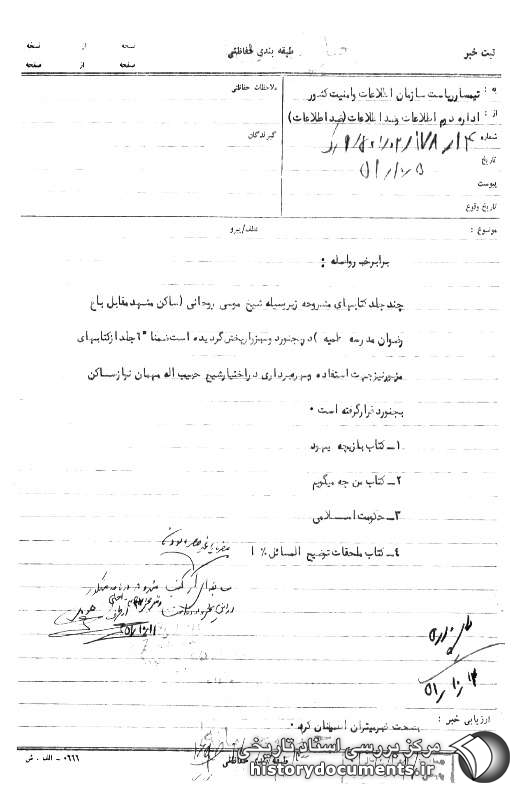 ثبت خبر
طبقه بندی حفاظتی
نسخه از نسخه
صفحه از صفحه
به : تیمسار ریاست سازمان اطلاعات و امنیت کشور
ملاحظات حفاظتی
از : اداره دوم اطلاعات و ضد اطلاعات (ضد اطلاعات)
شماره
گیرندگان
تاریخ ۵۱/۱۰/۵
پیوست
تاریخ وقوع
موضوع :
عطف/پیرو
برابر خبر واصله :
چند جلد کتابهای مشروحه زیر بوسیله شیخ موسی روحانی (ساکن مشهد مقابل باغ
رضوان مدرسه علمیه ) در بجنورد و سبزوار پخش گردیده است ضمنا" ۶ جلد از کتابهای
مزبور نیز جهت استفاده و بهره برداری در اختیار شیخ حبیب اله مهمان نواز ساکن
بجنورد قرار گرفته است .
۱ـ کتاب بازیچه یهود
۲ـ کتاب من چه میگویم
۳ـ حکومت اسلامی
۴ـ کتاب ملحقات توضیح المسائل
۵۱/۱۰/۱۱
۵۱/۱۰/۱۴
ارزیابی خبر :
بصحت خبر میتوان اطمینان کرد .
طبقه بندی حفاظتی
۰۶۶۶ - الف . ش
مرکز بررسی اسناد تاریخی
historydocuments.ir